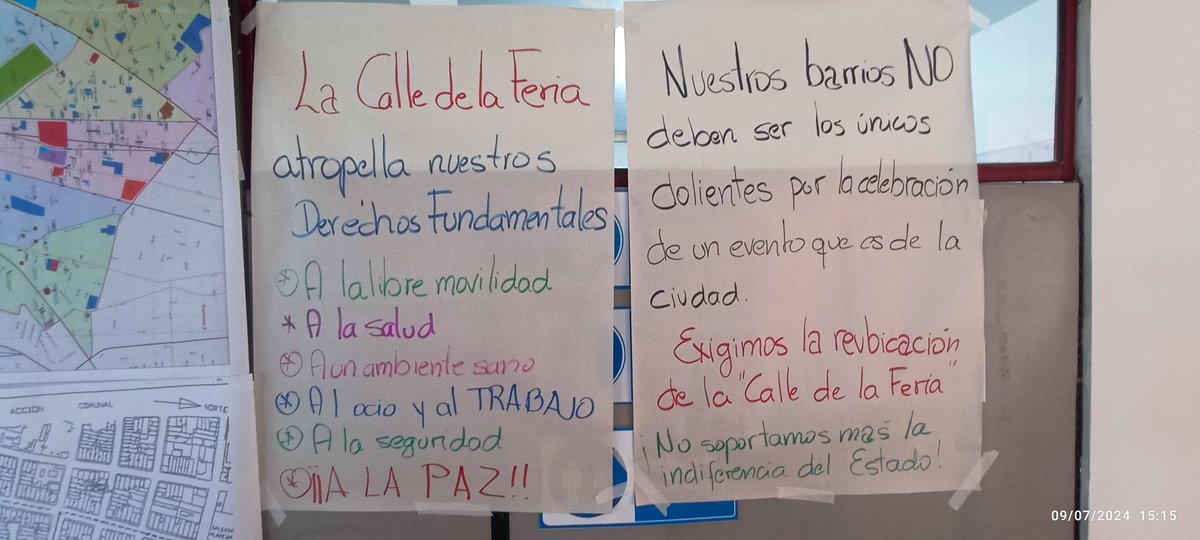 La Calle de la Feria
atropella nuestros
Derechos Fundamentales
* A la libre movilidad
* A la salud
* A un ambiente sano
* Al ocio y al TRABAJO
* A la seguridad
* ¡¡A LA PAZ!!
Nuestros barrios NO
deben ser los únicos
dolientes por la celebración
de un evento que es de la
ciudad.
Exigimos la reubicación
de la "Calle de la Feria"
¡No soportamos más la
indiferencia del Estado!
ACCION COMUNAL NORTE
09/07/2024 15:15